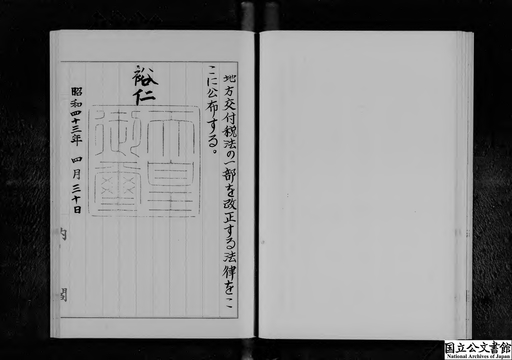 地方交付税法の一部を改正する法律をこ
こに公布する。
裕仁
天皇
御璽
昭和四十三年 四月三十日
内閣
国立公文書館
National Archives of Japan